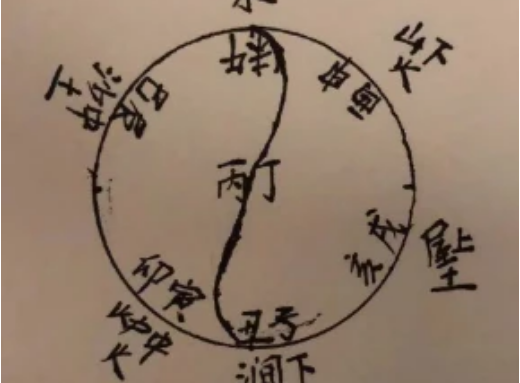 水
午未
山下火
申酉
沙中土
巳辰
丙丁
戌亥
屋上土
卯寅
炉中火
丑子
涧下